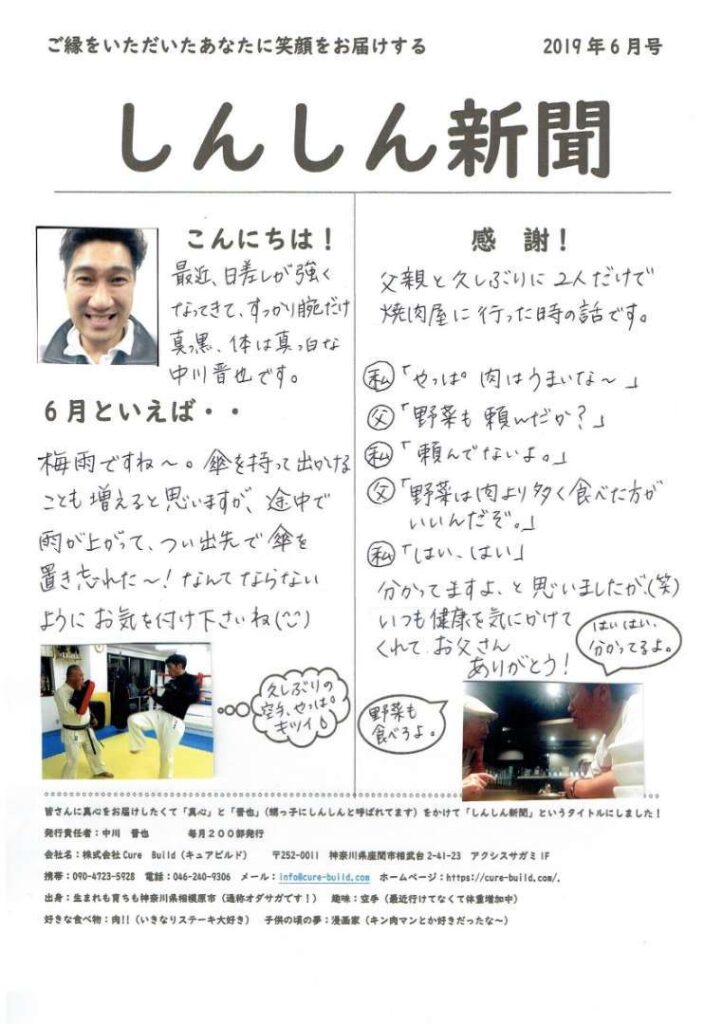 ご縁をいただいたあなたに笑顔をお届けする
2019年6月号
しんしん新聞
こんにちは！
最近、日差しが強く
なってきて、すっかり腕だけ
真っ黒、体は真っ白な
中川晋也です。
6月といえば・・
梅雨ですね〜。傘を持って出かける
ことも増えると思いますが、途中で
雨が上がって、つい出先で傘を
置き忘れた〜！なんてならない
ようにお気を付け下さいね(^^)
久しぶりの
空手、やっぱ。
キツイ
感　謝！
父親と久しぶりに2人だけで
焼肉屋に行った時の話です。
私「やっぱ肉はうまいな〜」
父「野菜も頼んだか？」
私「頼んでないよ。」
父「野菜は肉より多く食べた方が
いいんだぞ。」
私「はい、はい」
分かってますよ、と思いましたが、(笑)
いつも健康を気にかけて
くれて、お父さん
ありがとう！
はいはい、
分かってるよ。
野菜も
食べろよ。
皆さんに真心をお届けしたくて「真心」と「晋也」（甥っ子にしんしんと呼ばれてます）をかけて「しんしん新聞」というタイトルにしました！
発行責任者：中川　晋也　　毎月２００部発行
会社名：株式会社Cure Build（キュアビルド）　〒252-0011　神奈川県座間市相武台2-41-23　アクシスサガミ1F
携帯：090-4723-5928　電話：046-240-9306　メール：info@cure-build.com　ホームページ：https://cure-build.com/.
出身：生まれも育ちも神奈川県相模原市（通称オダサガです！）　趣味：空手（最近行けてなくて体重増加中）
好きな食べ物：肉!!（いきなりステーキ大好き）　子供の頃の夢：漫画家（キン肉マンとか好きだったな〜）